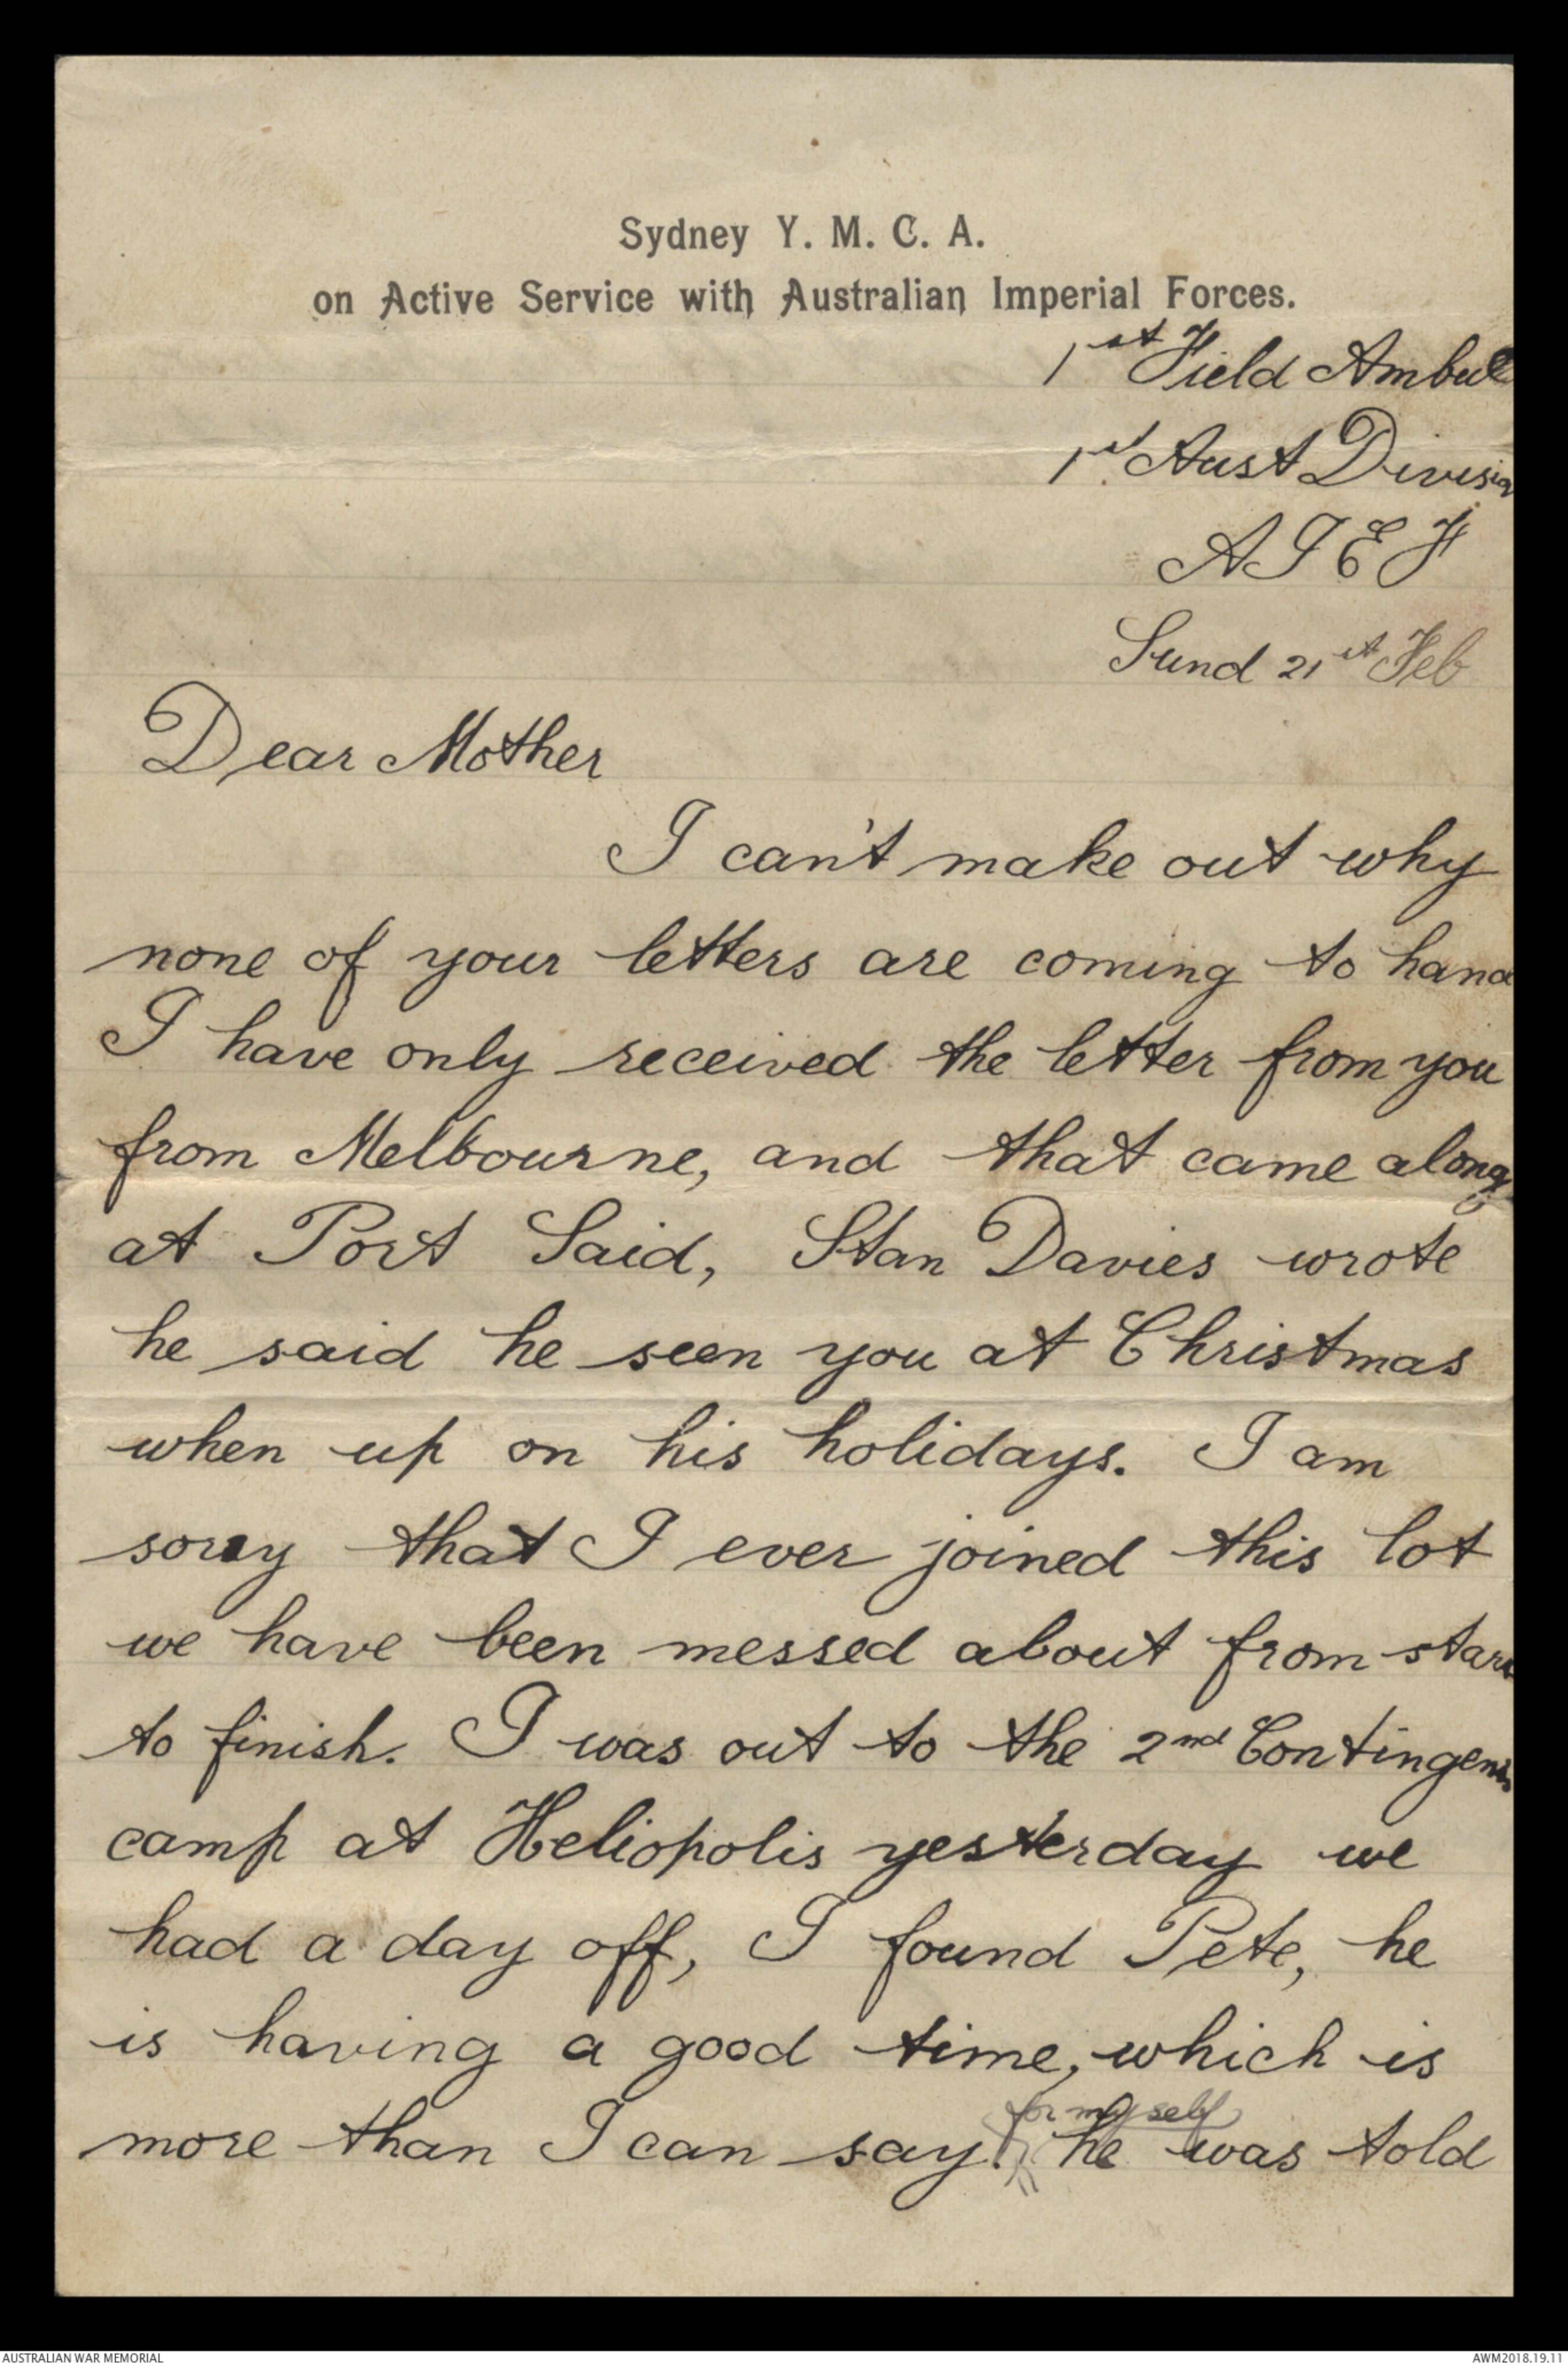 Sydney Y. M. C. A.
on Active Service with Australian Imperial Forces.
1st Field Ambul
1st Aust Division
A I E F
Sund 21st Feb
Dear Mother
I can't make out why
none of your letters are coming to hand
I have only received the letter from you
from Melbourne, and that came along
at Port Said, Stan Davies wrote
he said he seen you at Christmas
when up on his holidays. I am
sorry that I ever joined this lot
we have been messed about from start
to finish. I was out to the 2nd Contingent
camp at Heliopolis yesterday we
had a day off, I found Pete, he
is having a good time, which is
for myself
more than I can say. he was told
AUSTRALIAN WAR MEMORIAL
AWM2018.19.11